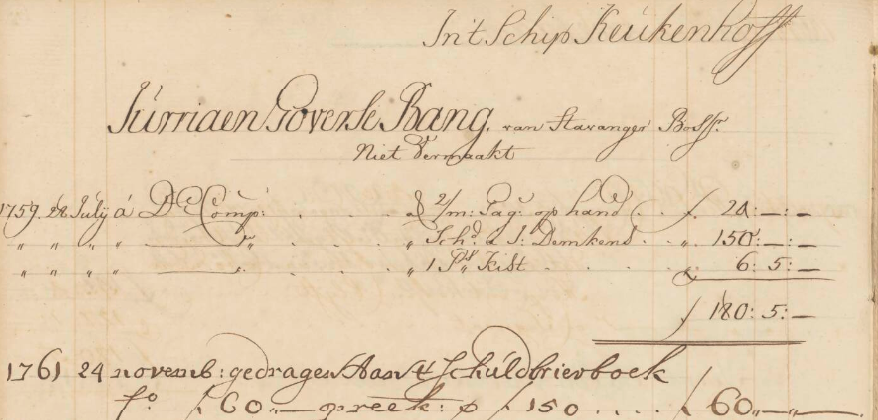 In't Schip Keukenhoff
Jurriaen Goverse Bang, van Stavanger Bossr.
Niet Vermaakt
1759. 28 Julij á De Comp: . . . . . & 2/m: Gag: op hand . f. 24:—:—
„ „ „ „ —— „ . . . . „ Schd. a J: Demkens . . „ 150:—:—
„ „ „ „ —— „ . . . . „ 1 Ps. Kist . . . . „ 6: 5:—
f 180: 5:—
1761 24 novemb: gedragen Aan 't Schuldbrievboek
fo. f 60 „— op reek: p f 150 . . . . f 60 „— „—